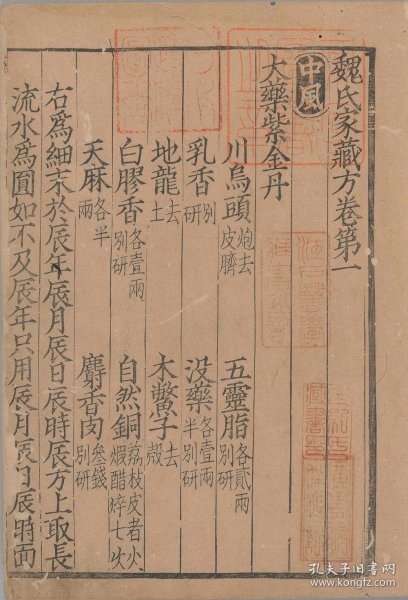 魏氏家藏方卷第一
中風
大藥紫金丹
川烏頭 炮去皮臍 五靈脂 各貳兩別研
乳香 別研 没藥 各壹兩半別研
地龍 去土 木鱉子 去殼
白膠香 各壹兩別研 自然銅 荔枝皮者火煆醋焠七次
天麻 各半兩 麝香肉 叁錢別研
右爲細末於辰年辰月辰日辰時辰方上取長
流水爲圓如不及辰年只用辰月辰日辰時面
孔夫子旧书网
www.kongfz.com